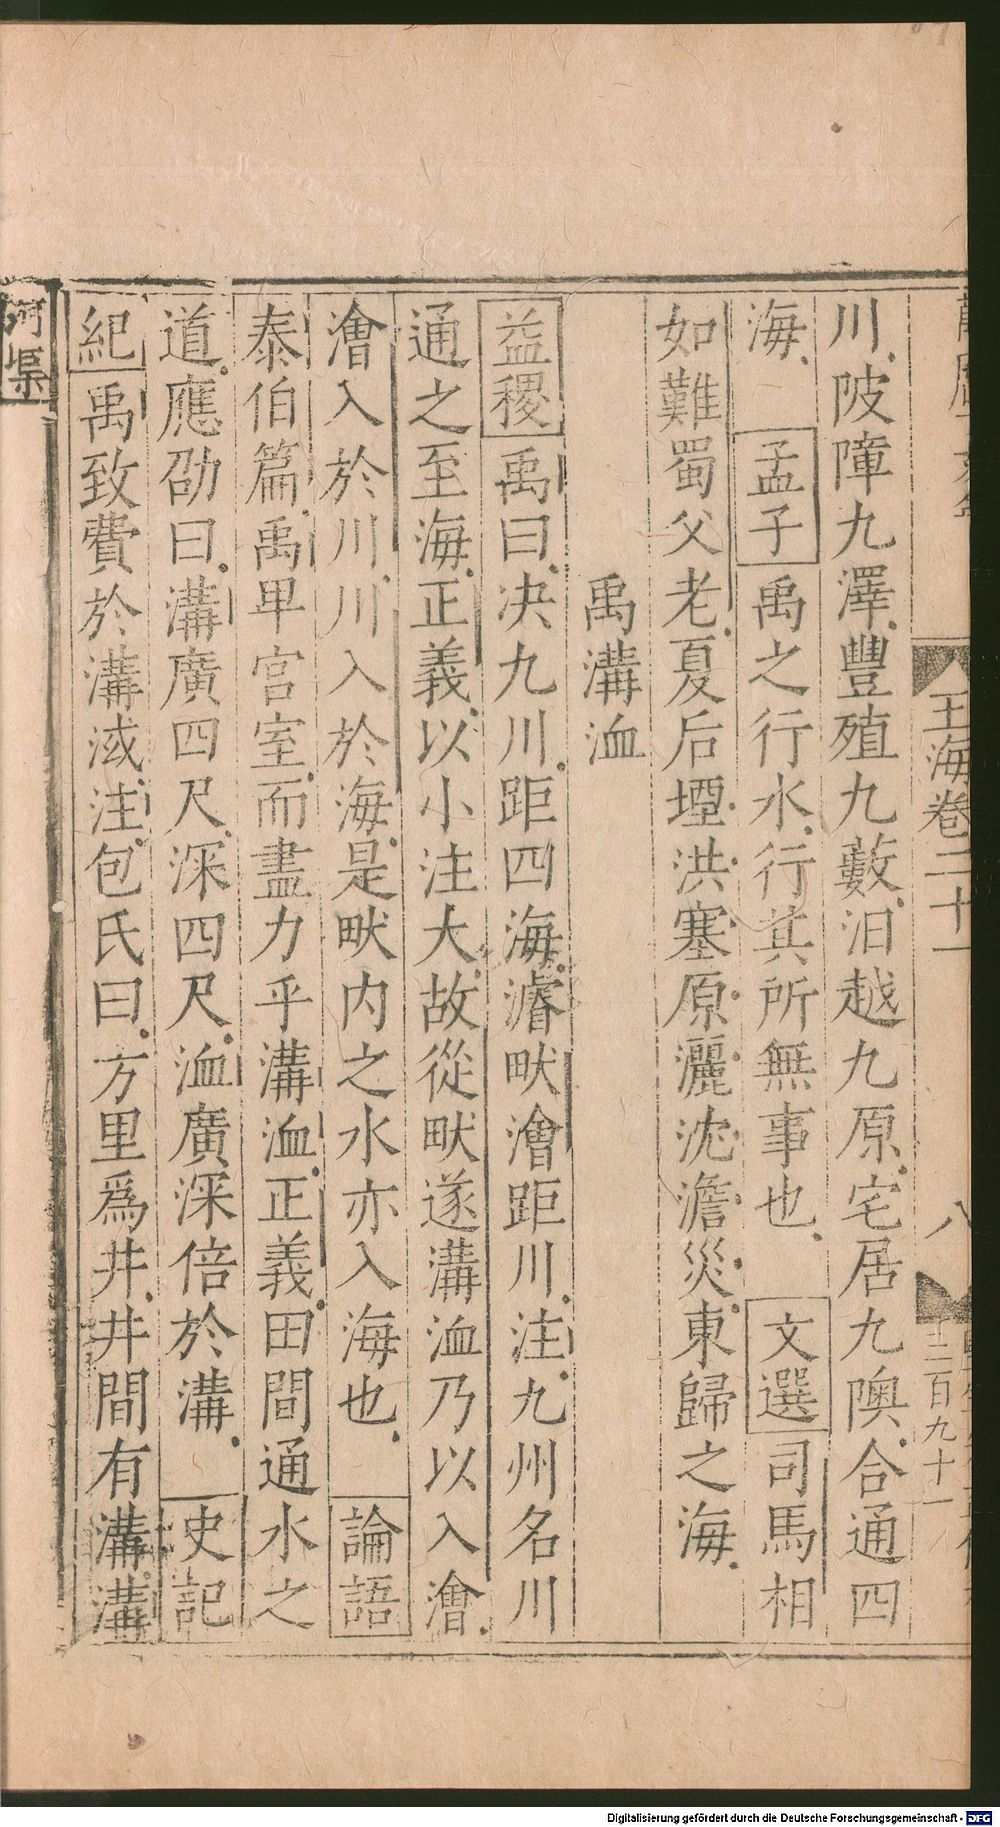 玉海卷二十一
八
十二百九十一
川陂障九澤豐殖九藪汨越九原宅居九隩合通四
海孟子禹之行水行其所無事也文選司馬相
如難蜀父老夏后堙洪塞原灑沈澹災東歸之海
禹溝洫
益稷禹曰决九川距四海濬畎澮距川注九州名川
通之至海正義以小注大故從畎遂溝洫乃以入澮
澮入於川川入於海是畎内之水亦入海也論語
泰伯篇禹卑宮室而盡力乎溝洫正義田間通水之
道應劭曰溝廣四尺深四尺洫廣深倍於溝史記
紀禹致費於溝淢注包氏曰方里爲井井間有溝溝
河渠
Digitalisierung gefördert durch die Deutsche Forschungsgemeinschaft - DFG